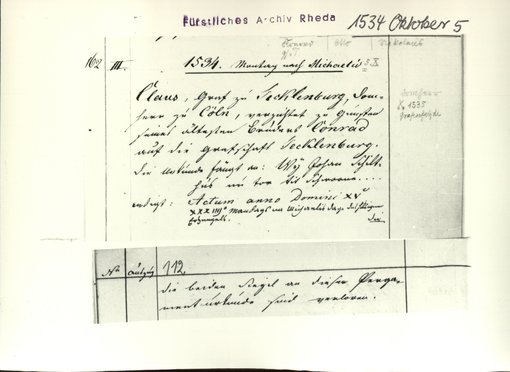 Fürstliches Archiv Rheda
1534 Oktober 5
Conrad Otto Nikolaus
162 III. 1534. Montag nach Michaelis 5.X
Claus, Graf zu Tecklenburg, Dom-
herr zu Cöln, verzichtet zu Gunsten
seines ältesten Bruders Conrad
auf die Grafschaft Tecklenburg.
Die Urkunde fängt an: Wÿ Johan
endigt: Actum anno Domini XVᶜ
XXXIIIIᵒ Mandags na Michaelis dage
Domherr
1535
No Auszug 112
die beiden Siegel an dieser Perga-
menturkunde sind verloren.